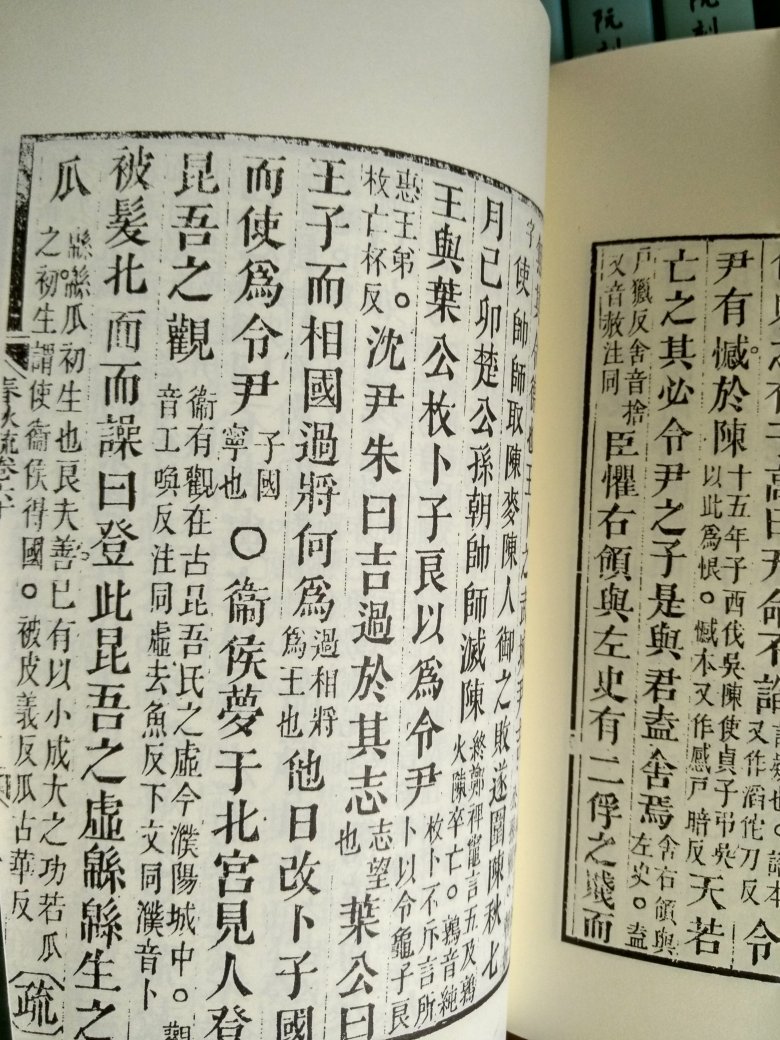 阮刻
阮刻
之有子高曰天命不謟言疑也。謟本又作滔佗刀反令
尹有憾於陳十五年子西伐吳陳使貞子弔吳以此爲恨。憾本又作感戶暗反天若
亡之其必令尹之子是與君盍舍焉舍右領與左史。盍
戶獵反舍音捨又音赦注同臣懼右領與左史有二俘之賤而
使帥師取陳麥陳人御之敗遂圍陳秋七
月己卯楚公孫朝帥師滅陳終鄭裨竈言五及鶉火陳卒亡。鶉音純
王與葉公枚卜子良以爲令尹枚卜不斥言所卜以令龜子良
惠王弟。枚亡杯反沈尹朱曰吉過於其志志望也葉公曰
王子而相國過將何爲過相將爲王也他日改卜子國
而使爲令尹子國寧也〇衞侯夢于北宮見人登
昆吾之觀衞有觀在古昆吾氏之虛今濮陽城中。觀音工喚反注同虛去魚反下文同濮音卜
被髮北面而譟曰登此昆吾之虛緜緜生之
瓜緜緜瓜初生也良夫善已有以小成大之功若瓜之初生謂使衞侯得國。被皮義反瓜古華反疏
春秋疏卷六十